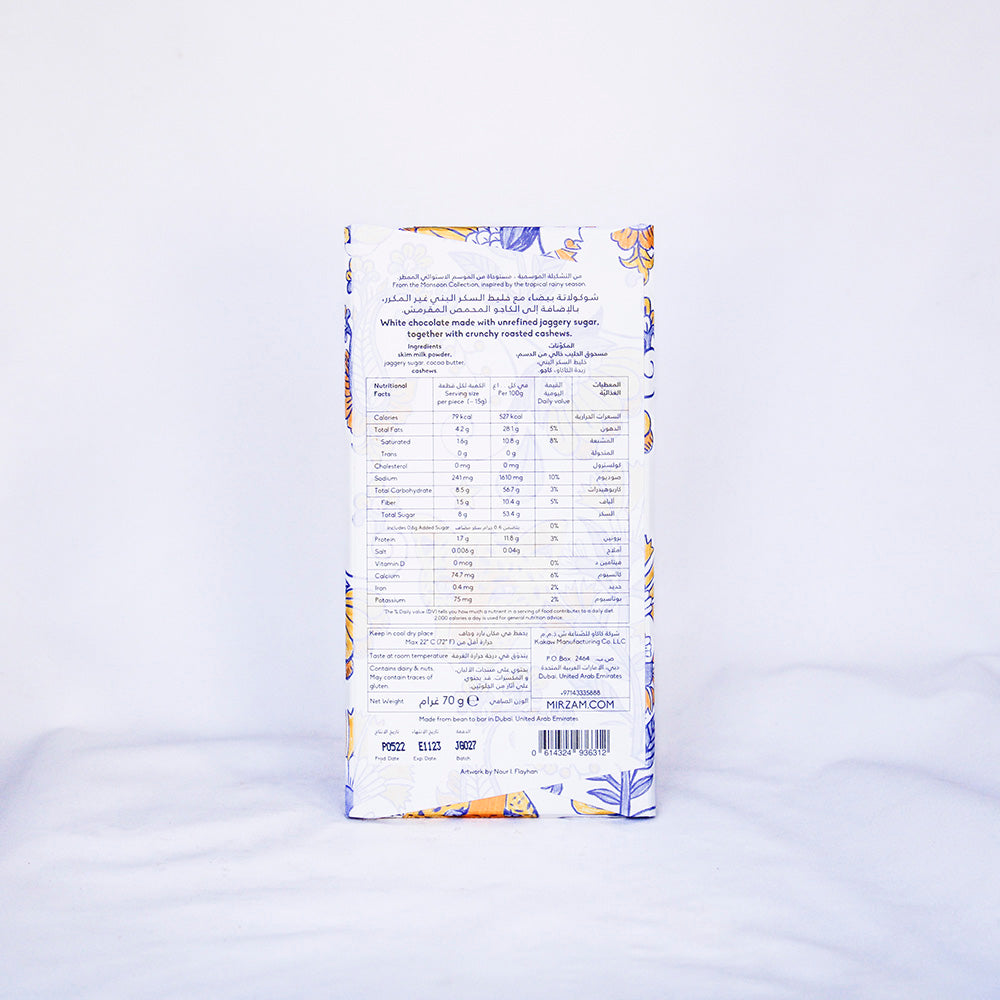 من التشكيلة الموسمية ، مستوحاة من الموسم الاستوائي الممطر.
From the Monsoon Collection, inspired by the tropical rainy season.
شوكولاتة بيضاء مع خليط السكر البني غير المكرر،
بالإضافة إلى الكاجو المحمص المقرمش.
White chocolate made with unrefined jaggery sugar,
together with crunchy roasted cashews.
Ingredients
skim milk powder,
jaggery sugar, cocoa butter,
cashews.
المكونات
مسحوق الحليب خالي من الدسم،
خليط السكر البني،
زبدة الكاكاو، كاجو.
Nutritional Facts الكمية لكل قطعة Serving size per piece (~15g) في كل Per 100g القيمة اليومية Daily value المعطيات الغذائية
Calories 79 kcal 527 kcal السعرات الحرارية
Total Fats 4.2 g 28.1 g 5% الدهون
Saturated 1.6g 10.8 g 8% المشبعة
Trans 0 g 0 g المتحولة
Cholesterol 0 mg 0 mg كولسترول
Sodium 241 mg 1610 mg 10% صوديوم
Total Carbohydrate 8.5 g 56.7 g 3% كاربوهيدرات
Fiber 1.5 g 10.4 g 5% ألياف
Total Sugar 8 g 53.4 g السكر
Includes 0.6g Added Sugar يتضمن 0.6 جرام سكر مضاف 0%
Protein 1.7 g 11.8 g 3% بروتين
Salt 0.006 g 0.04g أملاح
Vitamin D 0 mcg 0% فيتامين د
Calcium 74.7 mg 6% كالسيوم
Iron 0.4 mg 2% حديد
Potassium 75 mg 2% بوتاسيوم
*The % Daily value (DV) tells you how much a nutrient in a serving of food contributes to a daily diet.
2,000 calories a day is used for general nutrition advice.
Keep in cool dry place يحفظ في مكان بارد وجاف
Max 22° C (72° F) حرارة أقل من
Taste at room temperature يتذوق في درجة حرارة الغرفة
Contains dairy & nuts.
May contain traces of
gluten.
يحتوي على منتجات الألبان،
و المكسرات. قد يحتوي
على آثار من الجلوتين.
Net Weight 70 g ℮ غرام الوزن الصافي
شركة كاكاو للصناعة ش.ذ.م.م
Kakaw Manufacturing Co. LLC
P.O. Box 2464 ص.ب.
دبي، الإمارات العربية المتحدة
Dubai, United Arab Emirates
+97143335888
MIRZAM.COM
Made from bean to bar in Dubai, United Arab Emirates
تاريخ الانتاج تاريخ الانتهاء الدفعة
P0522 E1123 JG027
Prod Date Exp Date Batch
0 614324 936312
Artwork by Nour I. Flayhan